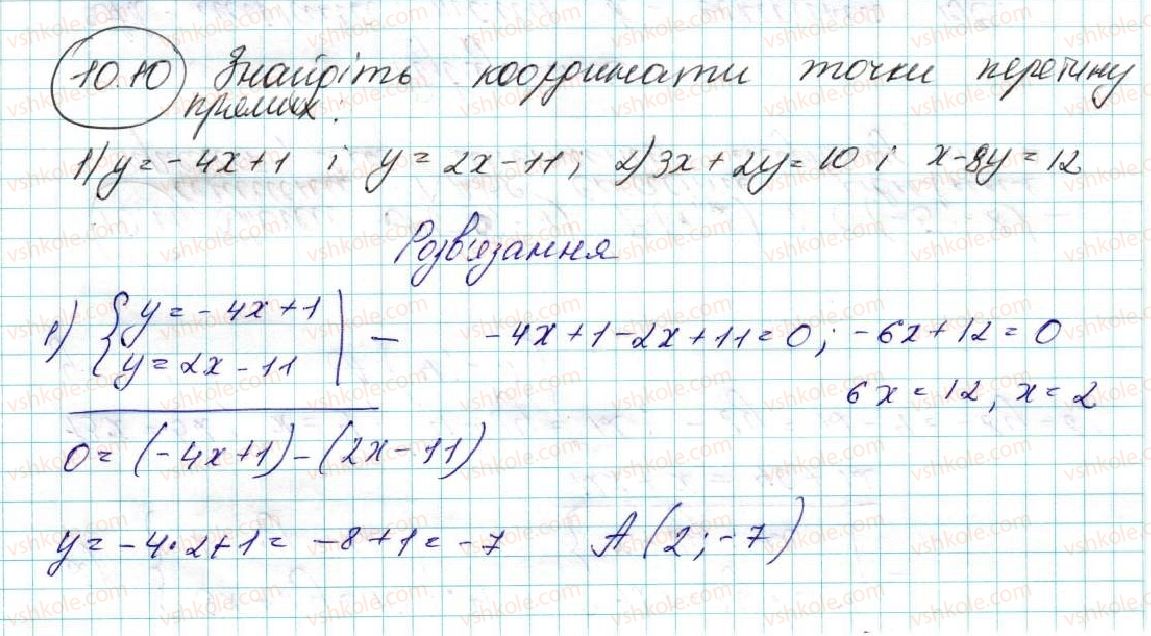 10.10 Знайдіть координати точки перетину
прямих:
1) y = -4x+1 і y = 2x-11; 2) 3x+2y=10 і x-8y=12
Розв'язання
1) { y = -4x+1 | — -4x+1-2x+11=0; -6x+12=0
{ y = 2x-11 | 6x=12, x=2
0 = (-4x+1)-(2x-11)
y = -4·2+1 = -8+1 = -7 A(2;-7)
vshkole.com